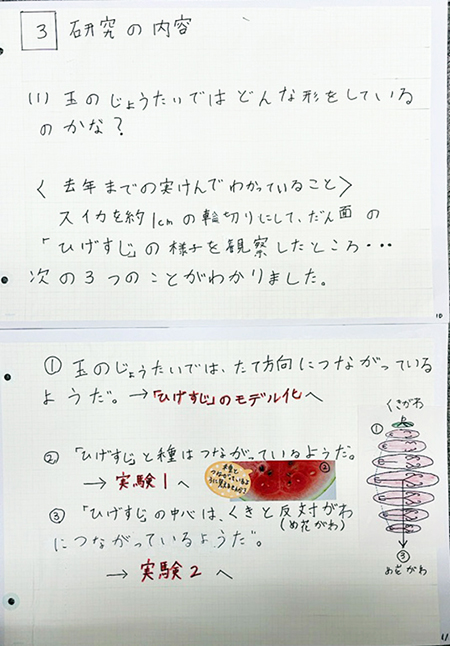 3 研究の内容
(1) 玉のじょうたいではどんな形をしている
のかな?
〈去年までの実けんでわかっていること〉
スイカを約1cmの輪切りにして、だん面の
「ひげすじ」の様子を観察したところ・・・
次の3つのことがわかりました。
10
① 玉のじょうたいでは、たて方向につながっている
ようだ。→「ひげすじ」のモデル化へ
② 「ひげすじ」と種はつながっているようだ。
→ 実験1へ
②
③ 「ひげすじ」の中心は、くきと反対がわ
(め花がわ)
につながっているようだ。
→ 実験2へ
くきがわ
①
③
め花がわ
11